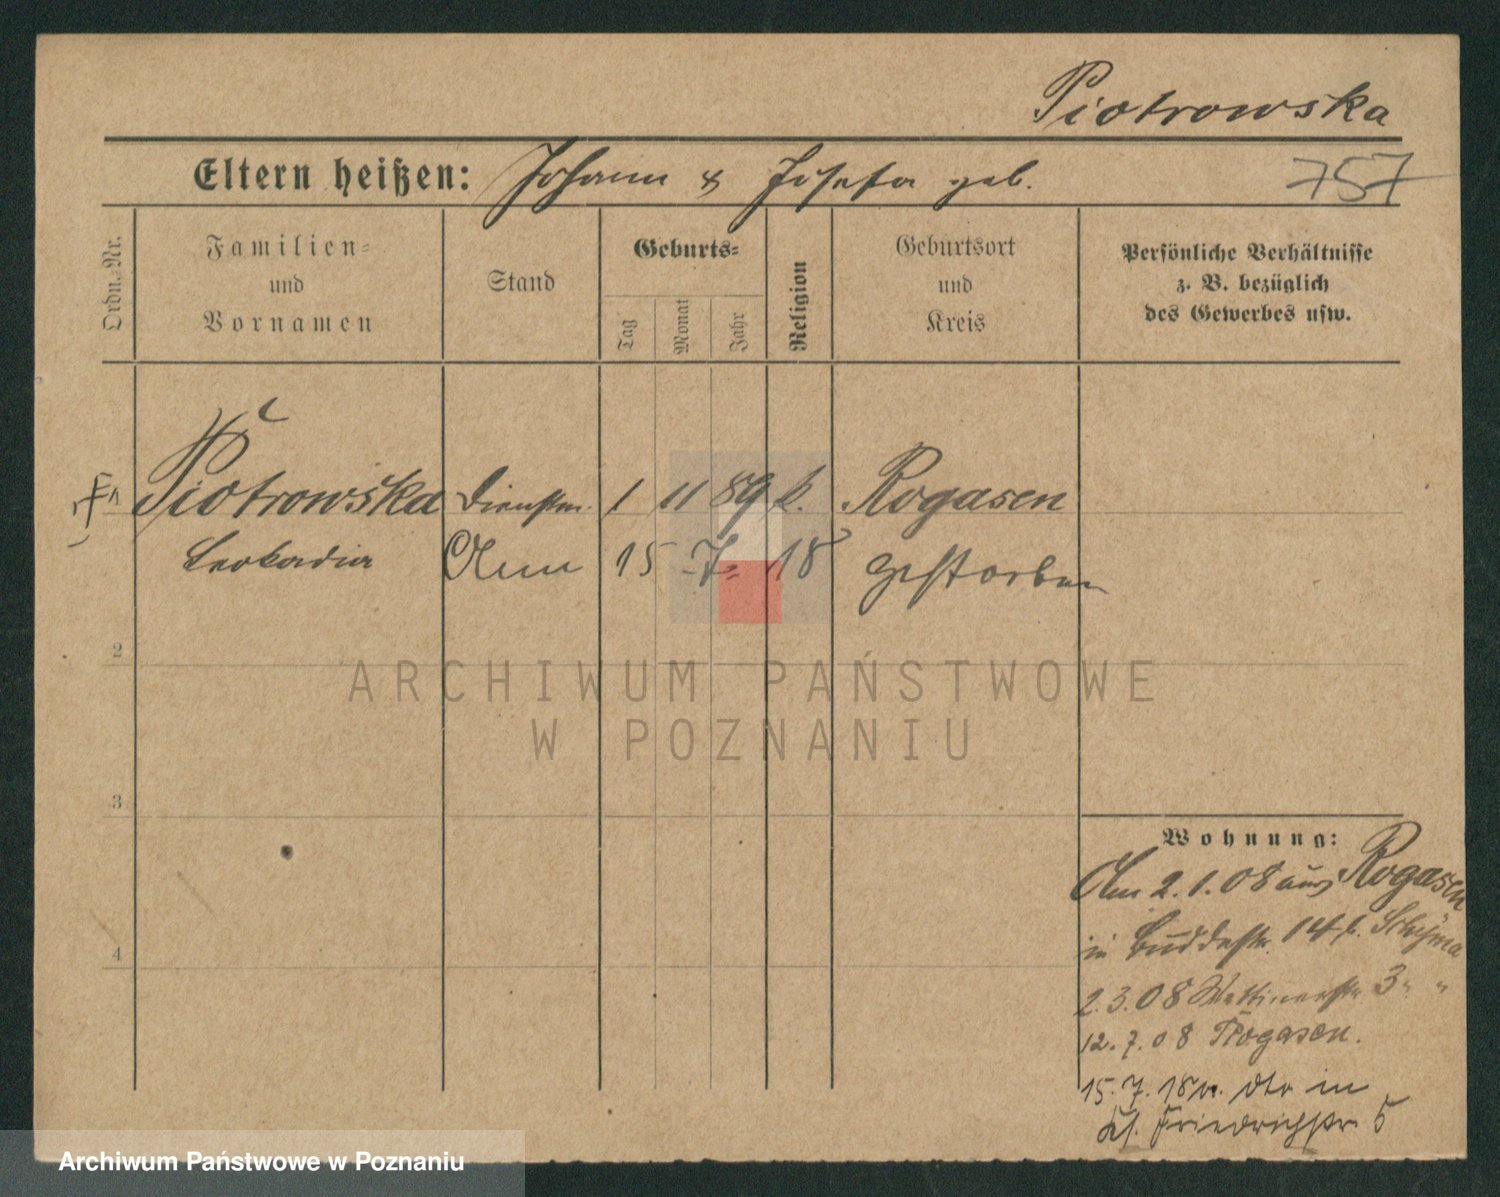 Piotrowska
Eltern heißen: Johann & Josefa geb.
757
Ordn.-Nr.
Familien-
und
Vornamen
Stand
Geburts-
Tag
Monat
Jahr
Religion
Geburtsort
und
Kreis
Persönliche Verhältnisse
z. B. bezüglich
des Gewerbes usw.
1 Piotrowska Dienstm. 1 11 89 k. Rogasen
Leokadia Am 15 7. 18 gestorben
2
3
4
Wohnung:
Am 2.1.08 aus Rogasen
in Buddestr. 14 b.
2.3.08 Wettinerstr. 3 " "
12.7.08 Rogasen.
15.7.18 v. dto in
Kl. Friedrichstr 5
ARCHIWUM PAŃSTWOWE
W POZNANIU
Archiwum Państwowe w Poznaniu